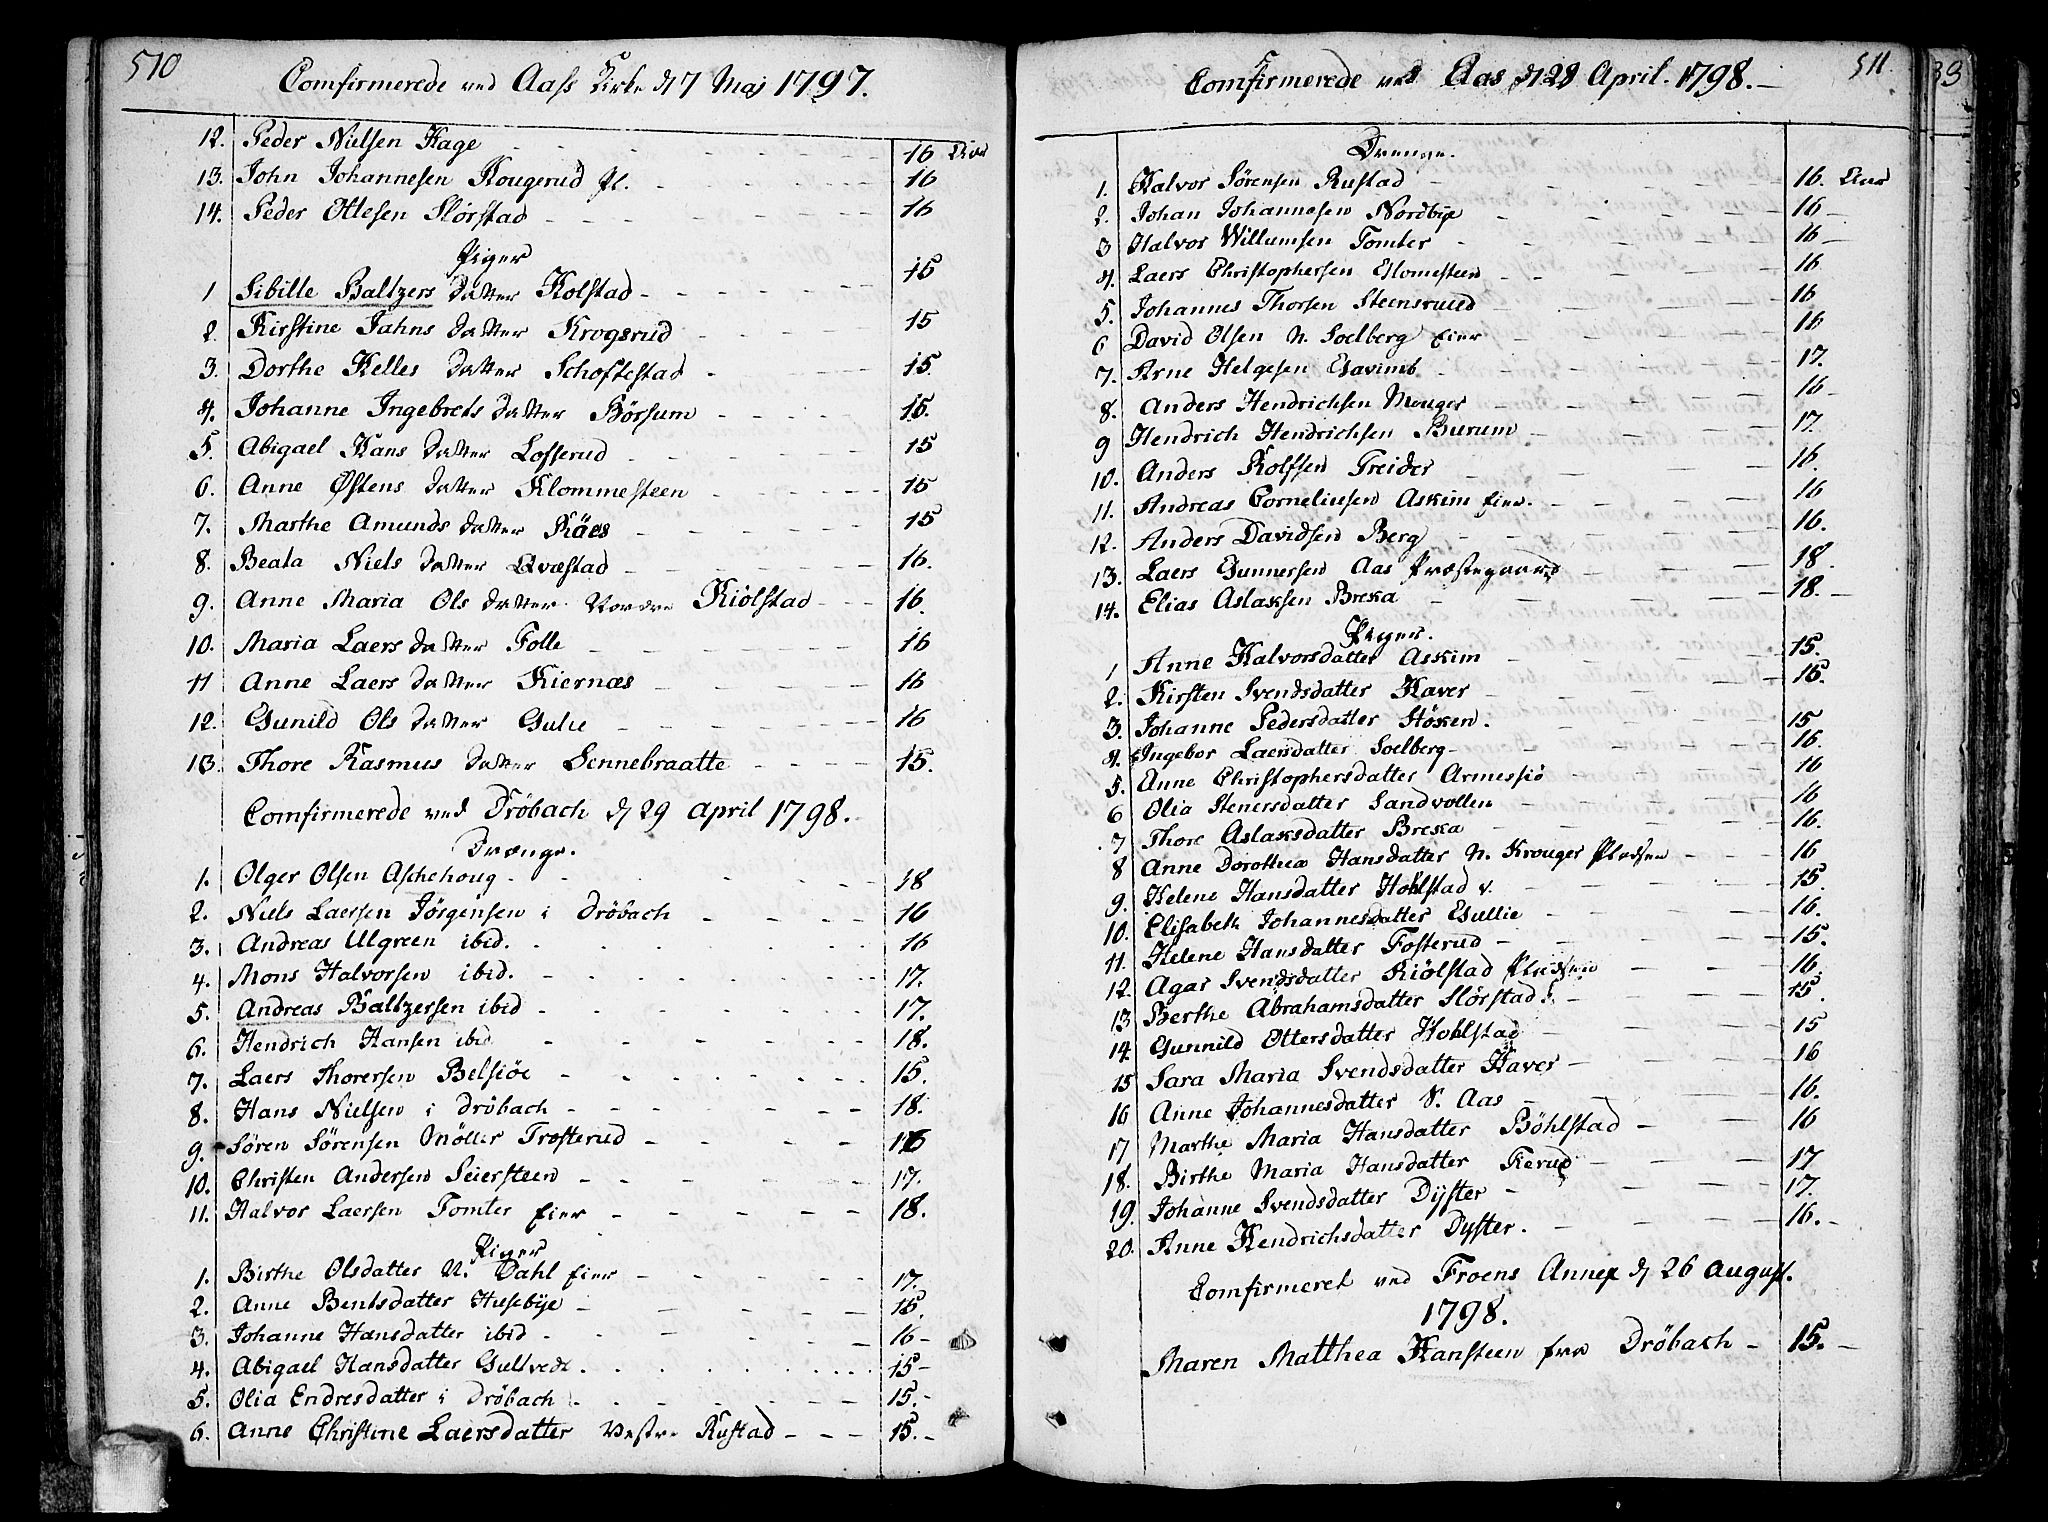 510
Comfirmerede ved Aass Kirke d 7 Maj 1797.
12. Peder Nielsen Hage 16 Aar
13. John Johannesen Kougerud Pl. 16
14. Peder Ottesen Störstad 16
Piger
1 Sibille Baltzers datter Kolstad 15
2. Kirstine Jahns datter Krogsrud 15
3. Dorthe Kelles datter Schoftestad 15.
4. Johanne Ingebrets datter Börsum 15.
5. Abigael Hans datter Losserud 15
6. Anne Østens datter Klommesteen 15
7. Marthe Amunds datter Räes 15
8. Beata Niels datter Qvæstad 16.
9. Anne Maria Ols datter Nordre Kiölstad 16.
10. Maria Laers datter Folle 16
11 Anne Laers datter Kiernæs 16
12. Gunild Ols datter Gulie 16
13. Thore Rasmus datter Sennebraatte 15.
Comfirmerede ved Dröbach d 29 April 1798.
Drænge.
1. Olger Olsen Aschehoug 18
2. Niels Laersen Jörgensen i Dröbach 16
3. Andreas Ulgreen ibid. 16
4. Mons Halvorsen ibid. 17.
5. Andreas Baltzersen ibid 17.
6. Hendrich Hansen ibid 18.
7. Laers Thorersen Belsiöe 15.
8. Hans Nielsen i Dröbach 18.
9. Søren Sørensen Möller Trosterud 16
10. Christen Andersen Seiersteen 17.
11. Halvor Laersen Tomter Eier 18.
Piger
1. Birthe Olsdatter N. Dahl Eier 17.
2. Anne Bentsdatter Husebÿe 15
3. Johanne Hansdatter ibid 16
4. Abigael Hansdatter Gultvedt 15
5. Olia Endresdatter i Dröbach 15.
6. Anne Christine Laersdatter Vestre Rustad 15.
511
Comfirmerede ved Aas d 28 April. 1798.
Drenge.
1. Halvor Sørensen Rustad 16. Aar
2. Johan Johannesen Nordbÿe 16
3 Halvor Willumsen Tomter 16
4. Laers Christophersen Klomesteen 16
5. Johannes Thorsen Steensruud 16
6 David Olsen N. Soelberg Eier 16
7. Arne Helgesen 17.
8. Anders Hendrichsen Mouger 16
9 Hendrich Hendrichsen Burum 17.
10. Anders Rolfsen Treider 16.
11. Andreas Corneliusen Askim Eier. 16
12. Anders Davidsen Berg 16.
13. Laers Gunnersen Aas Præstegaard 18.
14. Elias Aslaksen Breka 18.
Piger.
1 Anne Halvorsdatter Askim 15.
2. Kirsten Svendsdatter Haver 15.
3. Johanne Pedersdatter Höken. 15
4. Ingebor Laersdatter Soelberg 16.
5. Anne Christophersdatter Armessiö 16
6 Olia Stenersdatter Sandvollen 16
7 Thore Aslaksdatter Breka 16.
8 Anne Dorothea Hansdatter N. Krouger Pladsen 16
9. Helene Hansdatter Hohlstad v. 15.
10. Elisabeth Johannesdatter Gullie 16.
11. Helene Hansdatter Fosterud 15.
12. Agar Svendsdatter Kiölstad Pladsen 16.
13 Berthe Abrahamsdatter Störstad S. 15.
14. Gunnild Ottersdatter Hohlstad 15
15 Sara Maria Svendsdatter Haver 16
16 Anne Johannesdatter S. Aas 16.
17 Marthe Maria Hansdatter Böhlstad 16
18. Birthe Maria Hansdatter Kerud 17
19. Johanne Svendsdatter Dÿster 17.
20. Anne Hendrichsdatter Dyster. 16.
Comfirmeret ved Froens Annex d 26 August.
1798.
Maren Matthea Hansteen fra Dröbach 15.